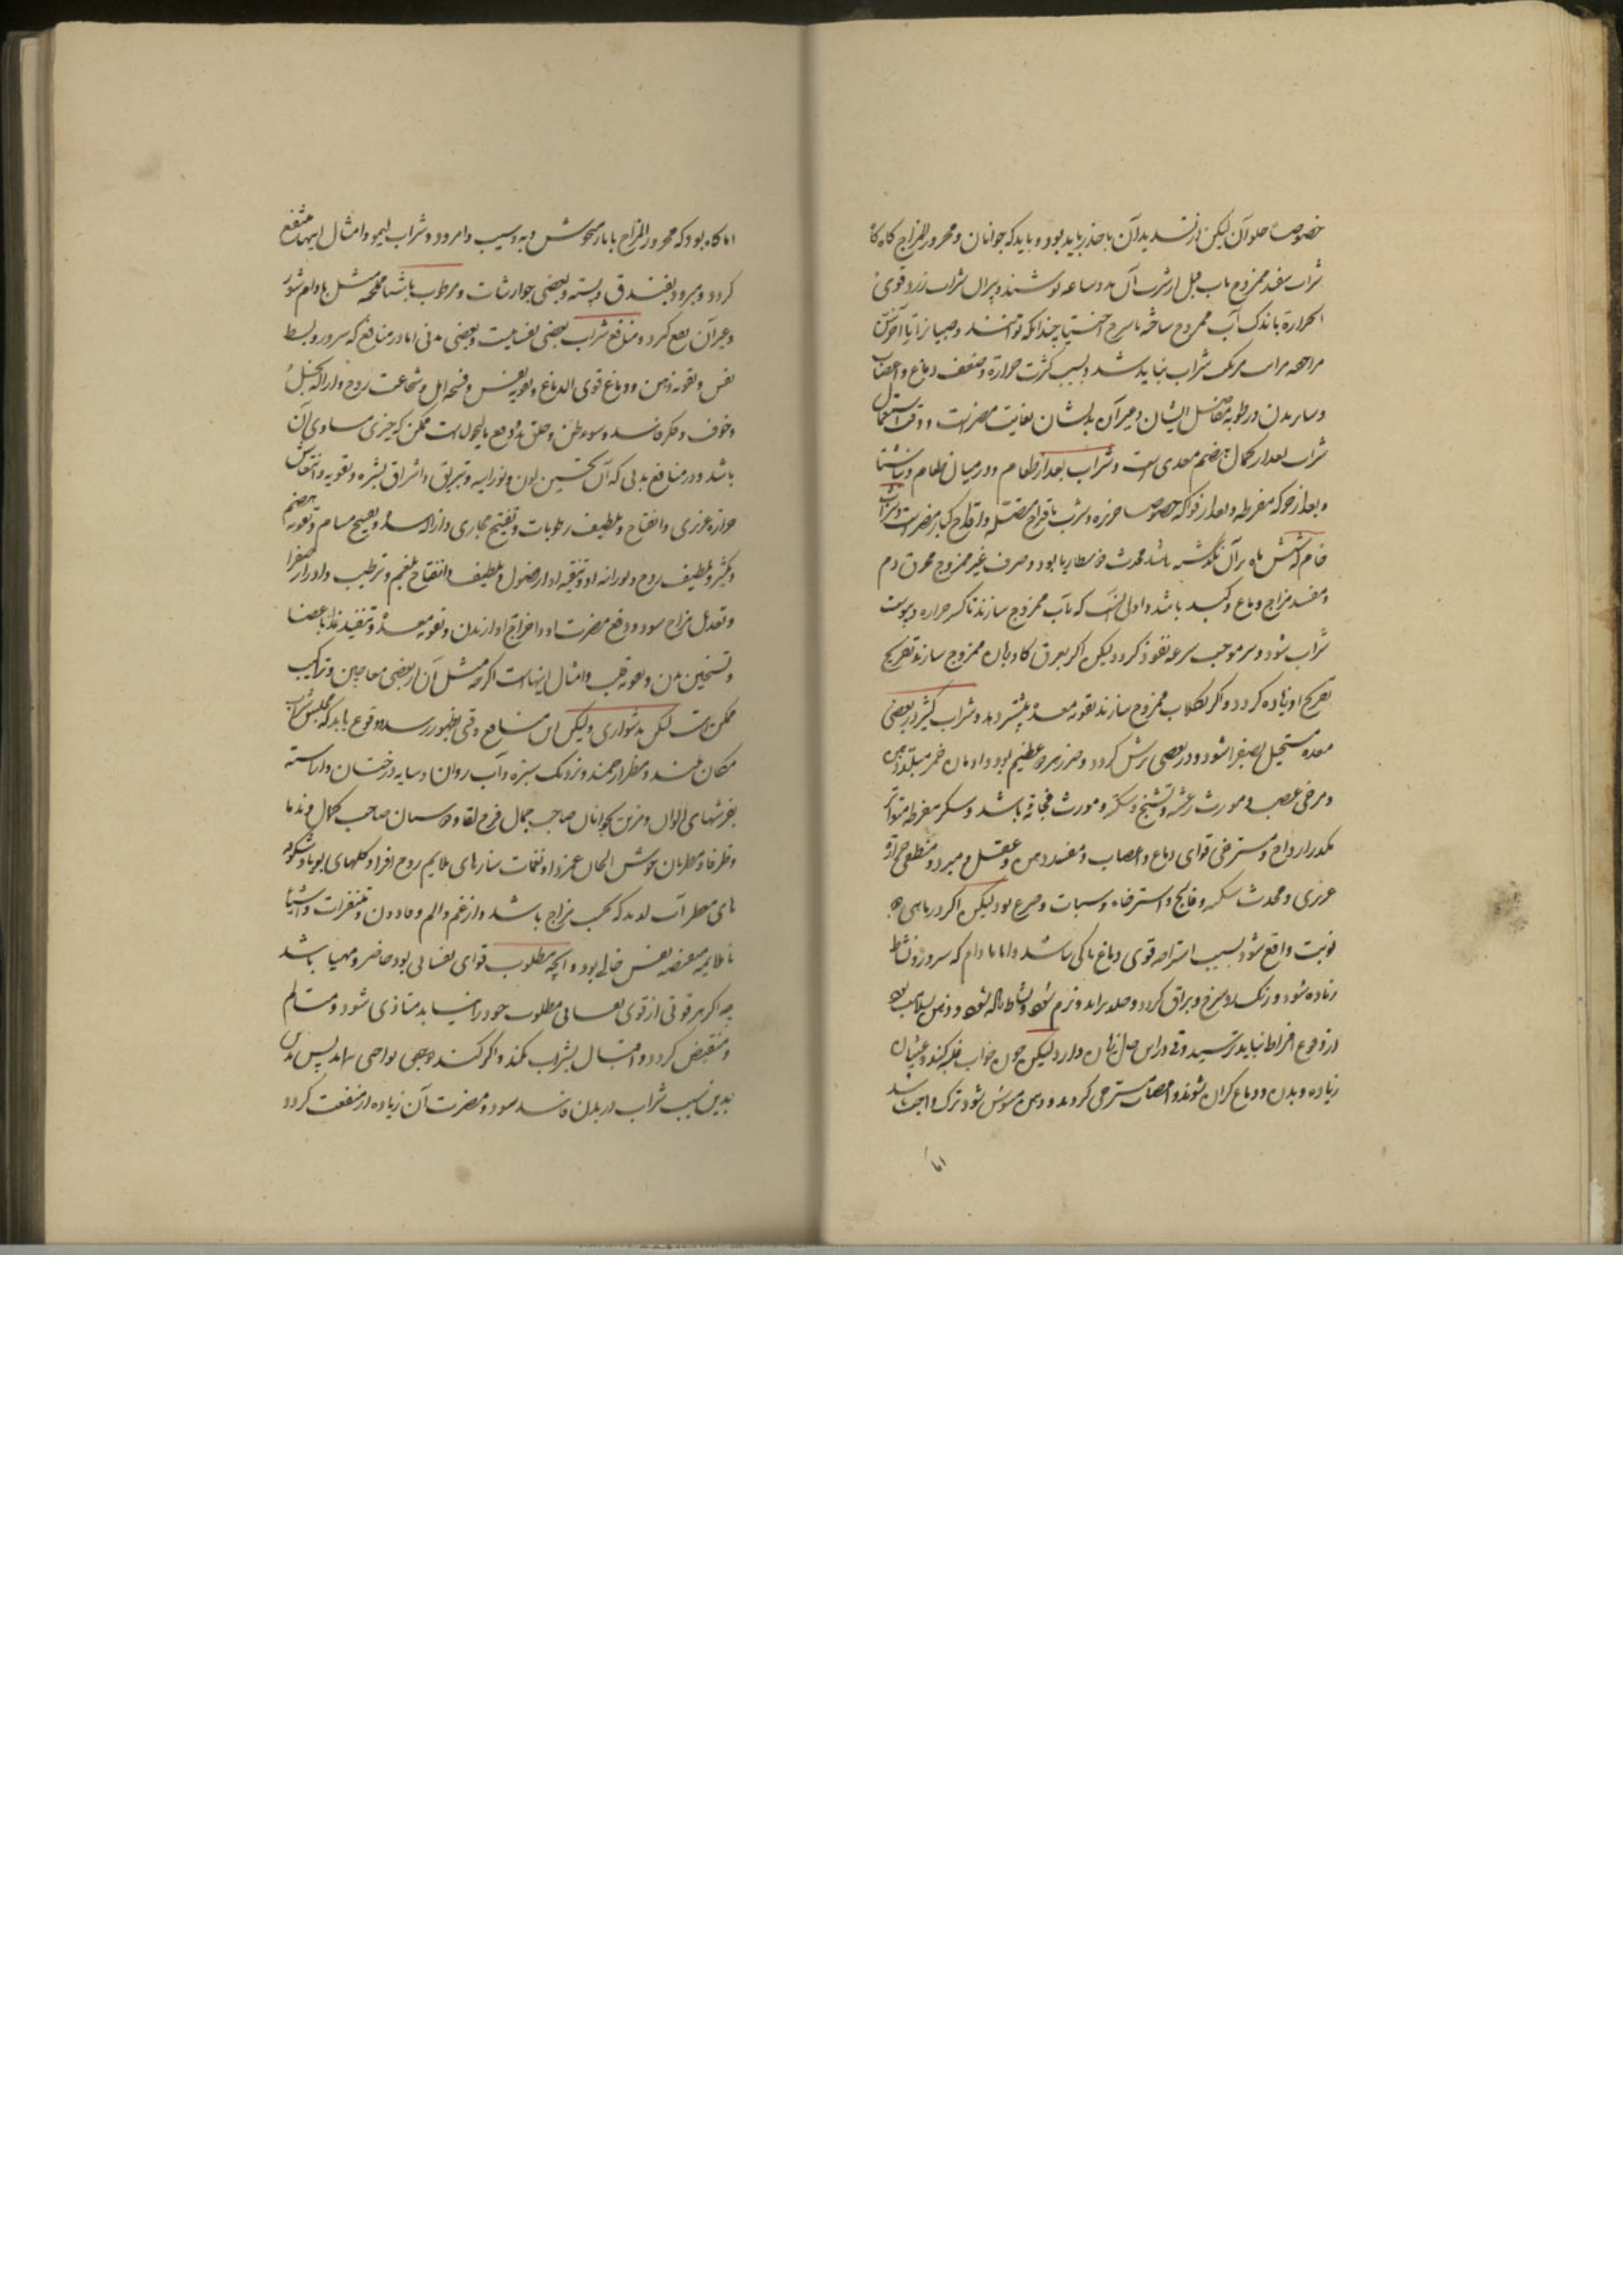 خصوصا حلو آن لیکن از تسدید آن با حذر باید بود و باید که جوانان و محرور المزاج کاه کاه
شراب سفید ممزوج باب قبل از شرب آن بدو ساعه نوشند و پیران شراب زرد قوی
الحرارة باندک آب ممزوج ساخته چندانکه توانند و صبیانرا
شراب نباید شد و بسبب کثرت حرارة و ضعف دماغ و اعصاب
و سایر بدن و رطوبه مفاصل ایشان و غیر آن بدیشان بغایت مضرست و وقت استعمال
شراب بعد از کمال هضم معدی است و شراب بعد از طعام و در میان طعام و ناشتا
و بعد از حرکه مفرطه و بعد از فواکه خصوصا خربزه و شرب باقداح متصله و اقداح کبار مضرست و شراب
خام که شش ماه بر آن نگذشته باشد محدث ذوسنطاریا بود و صرف غیر ممزوج محرق دم
و مفسد مزاج دماغ و کبد باشد و اولی آنست که بآب ممزوج سازند تا کسر حراره و یبوست
شراب شود و سرعه نفوذ کردد لیکن اکر بعرق کاوزبان ممزوج سازند تفریح
تفریح او زیاده کردد و اکر بکلاب ممزوج سازند تقویه معده بیشتر دهد و شراب کثیر در بعضی
معده مستحیل بصفرا شود و در بعضی ترش کردد و ضرر هر دو عظیم بود و ادمان خمر مبلد ذهن
و مرخی عصب و مورث رعشه و تشنج و سکته و مورث فجاءة باشد و سکر مفرط متواتر
مکدر ارواح و مسترخی قوای دماغ و اعصاب و مفسد ذهن و عقل و مبرد و منطفی حرارة
غریزی و محدث سکته و فالج و استرخاء و سبات و صرع بود لیکن اکر در ماهی دو
نوبت واقع شود بسبب استراحه قوی دماغ باکی نباشد و اما مادام که سرور و نشاط
زیاده شود و رنک رو سرخ و براق کردد و جلد براید و نرم شود و نشاط زیاده شود و ذهن سلیم بود
از وقوع افراط نباید ترسید لیکن چون خواب غلبه کند و غثیان
زیاده و بدن و دماغ کران شوند و اعصاب مسترخی کردند و ذهن مشوش شود ترک واجب باشد
اما
اما کاه بود که محرور المزاج بانار میخوش و به و سیب و امرود و شراب لیمو و امثال اینها منتفع
کردد و مبرود بفندق و پسته و بعضی جوارشات و مرطوب باشیا مملحه مثل بادام شور
و غیر آن نفع کیرد و منافع شراب بعضی نفسانیست و بعضی بدنی اما در منافع که سرور و بسط
نفس و تقویه ذهن و دماغ قوی الدماغ و تقویه نفس و فسحه امل و شجاعت روح و ازاله بخل
و خوف و فکر فاسد و سوء ظن و خلق بد و دفع مالیخولیاست ممکن که چیزی مساوی آن
باشد و در منافع بدنی که آن تحسین لون و نورانیه و تبریق و اشراق بشره و تقویه و انتعاش
حرارة غریزی و انضاج و تلطیف رطوبات و تفتیح مجاری و ازاله سده و تفتیح مسام و تقویه هضم
و تکثیر و تلطیف روح و نورانیه او و تنقیه او از فضول و تلطیف و انضاج بلغم و ترطیب و ادرار صفرا
و تعدیل مزاج سودا و دفع مضرت او و اخراج او از بدن و تقویه معده و تنفیذ غذا باعضا
و تسخین بدن و تقویه قلب و امثال اینهاست اکرچه مثل آن از بعضی معاجین و تراکیب
ممکن است لیکن بدشواری ولیکن این منافع وقتی بظهور رسد و وقوع یابد که مجلس شراب
مکان بلند و منظر ارجمند و نزدیک سبزه و آب روان و سایه درختان و اراسته
بفرشهای الوان و مزین بجوانان صاحب جمال فرح لقا و دوستان صاحب کمال و ندما
و ظرفا و مطربان خوش الحان و نغمات سازهای ملایم روح افزا و کلهای بویا و شکوفه
های معطر لذیذ که بحسب مزاج باشد و از غم و الم و متنفرات و اشیا
ناملایمه نفس خالی بود و انچه مطلوب قوای نفسانی بود حاضر و مهیا باشد
چه اکر هر قوتی از قوی نفسانی مطلوب خود را نیابد متاذی شود و متالم
و منقبض کردد و اقبال بشراب نکند و اکر کند بوجهی نباید پس بدن
بدین سبب شراب در بدن فاسد شود و مضرت آن زیاده از منفعت کردد